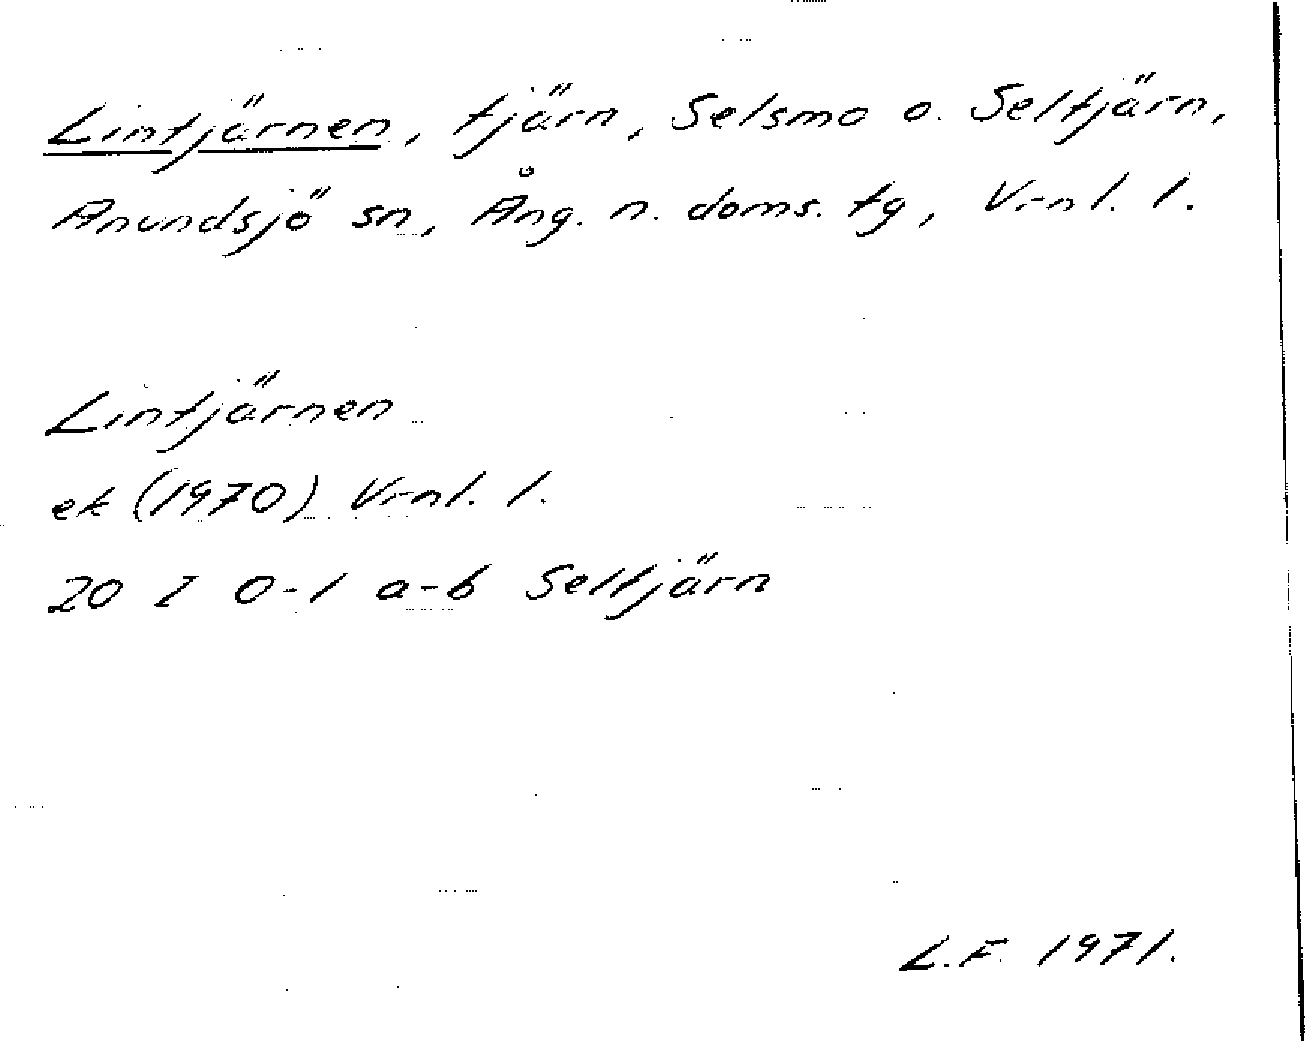 Lintjärnen, tjärn, Selsmo o. Seltjärn,
Anundsjö sn, Ång. n. doms. tg, Vrnl. l.
Lintjärnen
ek (1970) Vrnl. l.
20 I 0-1 a-b Seltjärn
L.F. 1971.